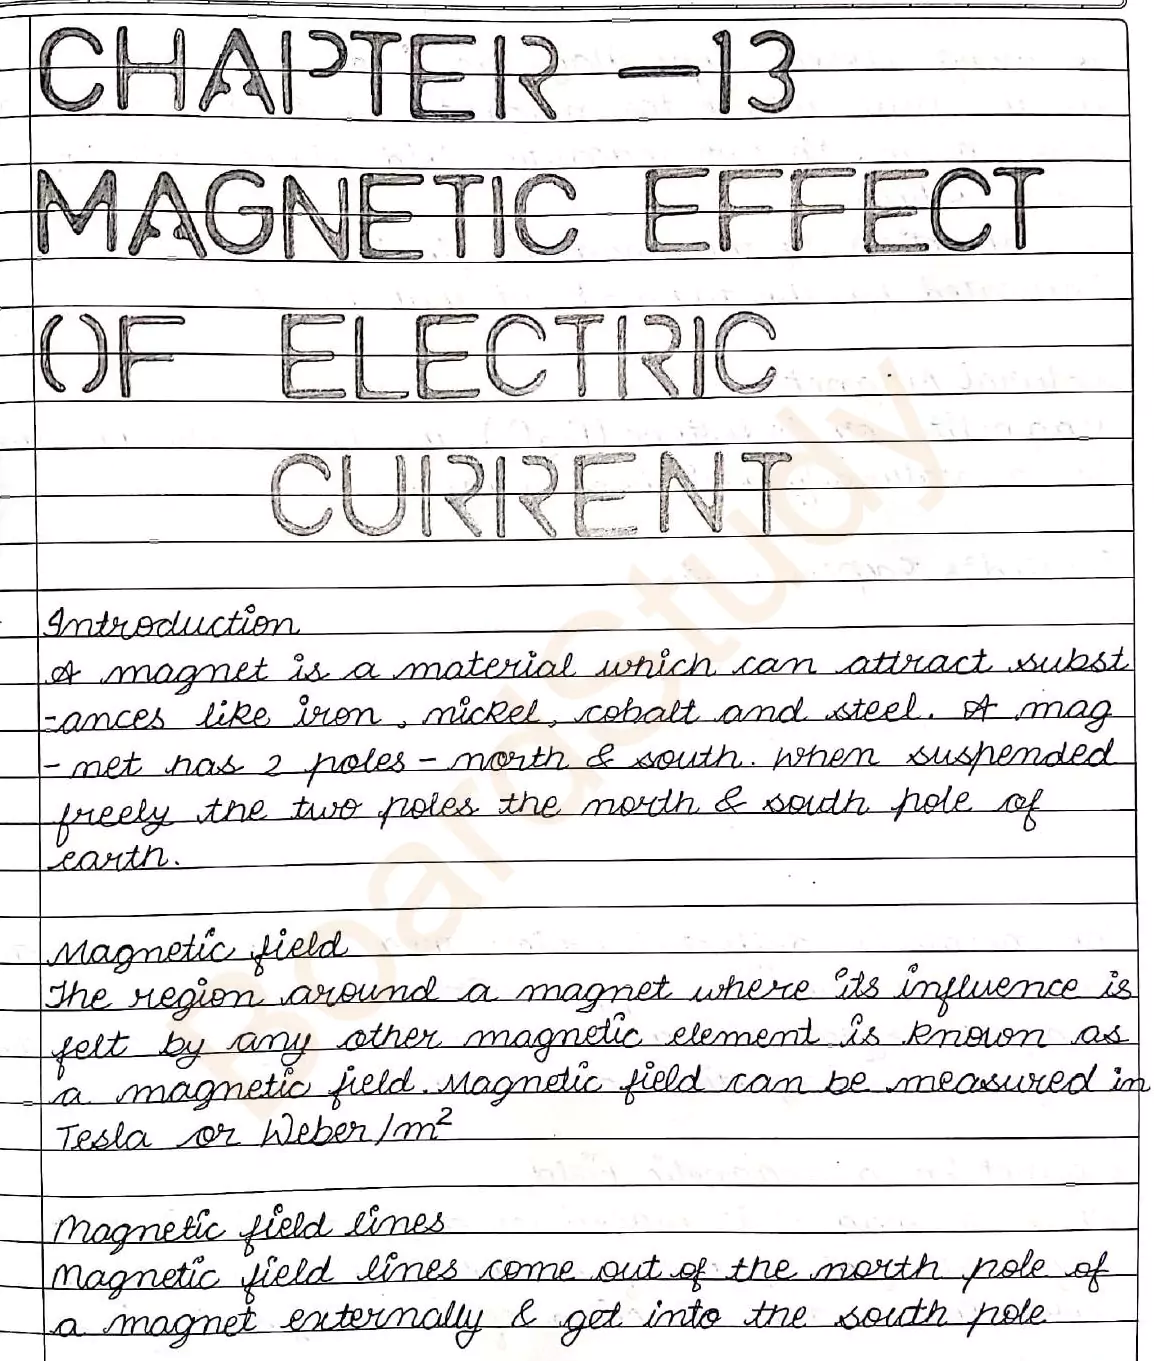 CHAPTER - 13
MAGNETIC EFFECT
OF ELECTRIC
CURRENT
Introduction
A magnet is a material which can attract subst
-ances like iron, nickel, cobalt and steel. A mag
-net has 2 poles - north & south. When suspended
freely the two poles the north & south pole of
earth.
Magnetic field
The region around a magnet where its influence is
felt by any other magnetic element is known as
a magnetic field. Magnetic field can be measured in
Tesla or Weber/m²
Magnetic field lines
Magnetic field lines come out of the north pole of
a magnet externally & get into the south pole
BoardStudy